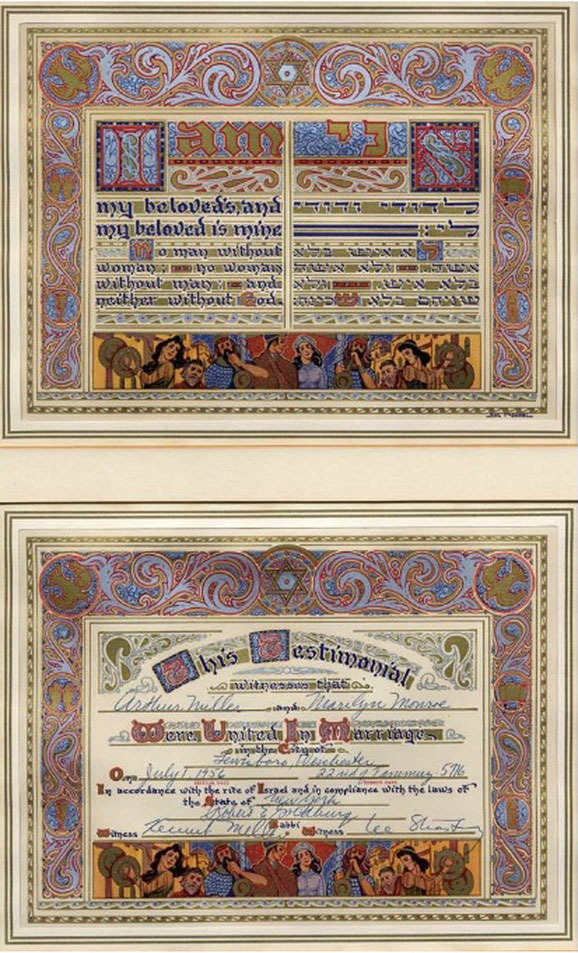 I am
my beloved's, and
my beloved is mine
No man without
woman; no woman
without man; and
neither without God.
אני
לדודי ודודי
לי:
לא איש בלא
אשה ולא אשה
בלא איש ולא
שניהם בלא שכינה:
This Testimonial
witnesses that
Arthur Miller and Marilyn Monroe
Were United In Marriage
in the City of
Lewisboro, Westchester
On July 1 1956 22nd of Tammuz 5716
In accordance with the rite of Israel and in compliance with the laws of
the State of New York
Robert E Goldburg
Rabbi
Witness Kermit Miller Witness Lee